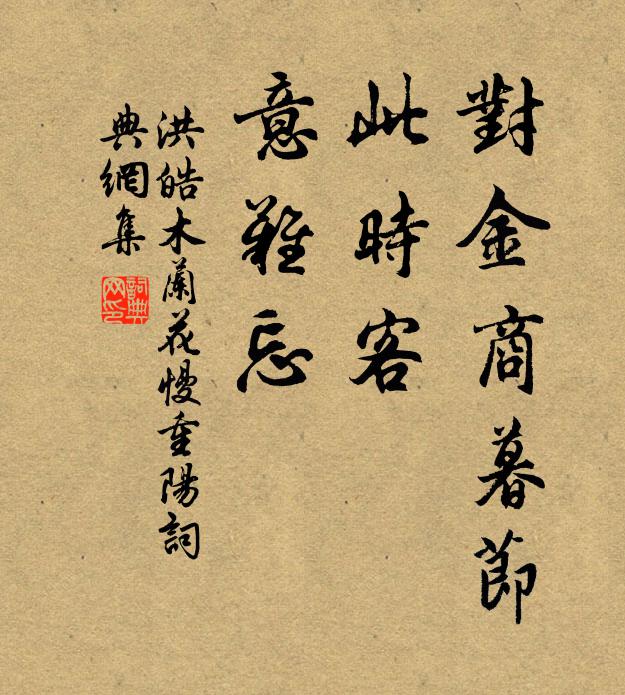 對金商暮節
此時客
意難忘
洪皓木蘭花慢重陽詞
典網集
詞典網印